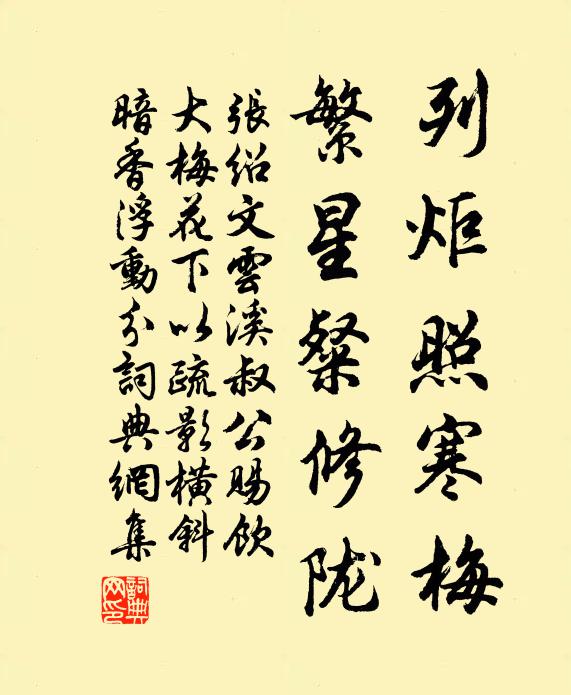 列炬照寒梅
繁星粲修陇
張紹文雲溪叔公賜飲
大梅花下以疏影横斜
暗香浮動分詞典網集
詞典網印